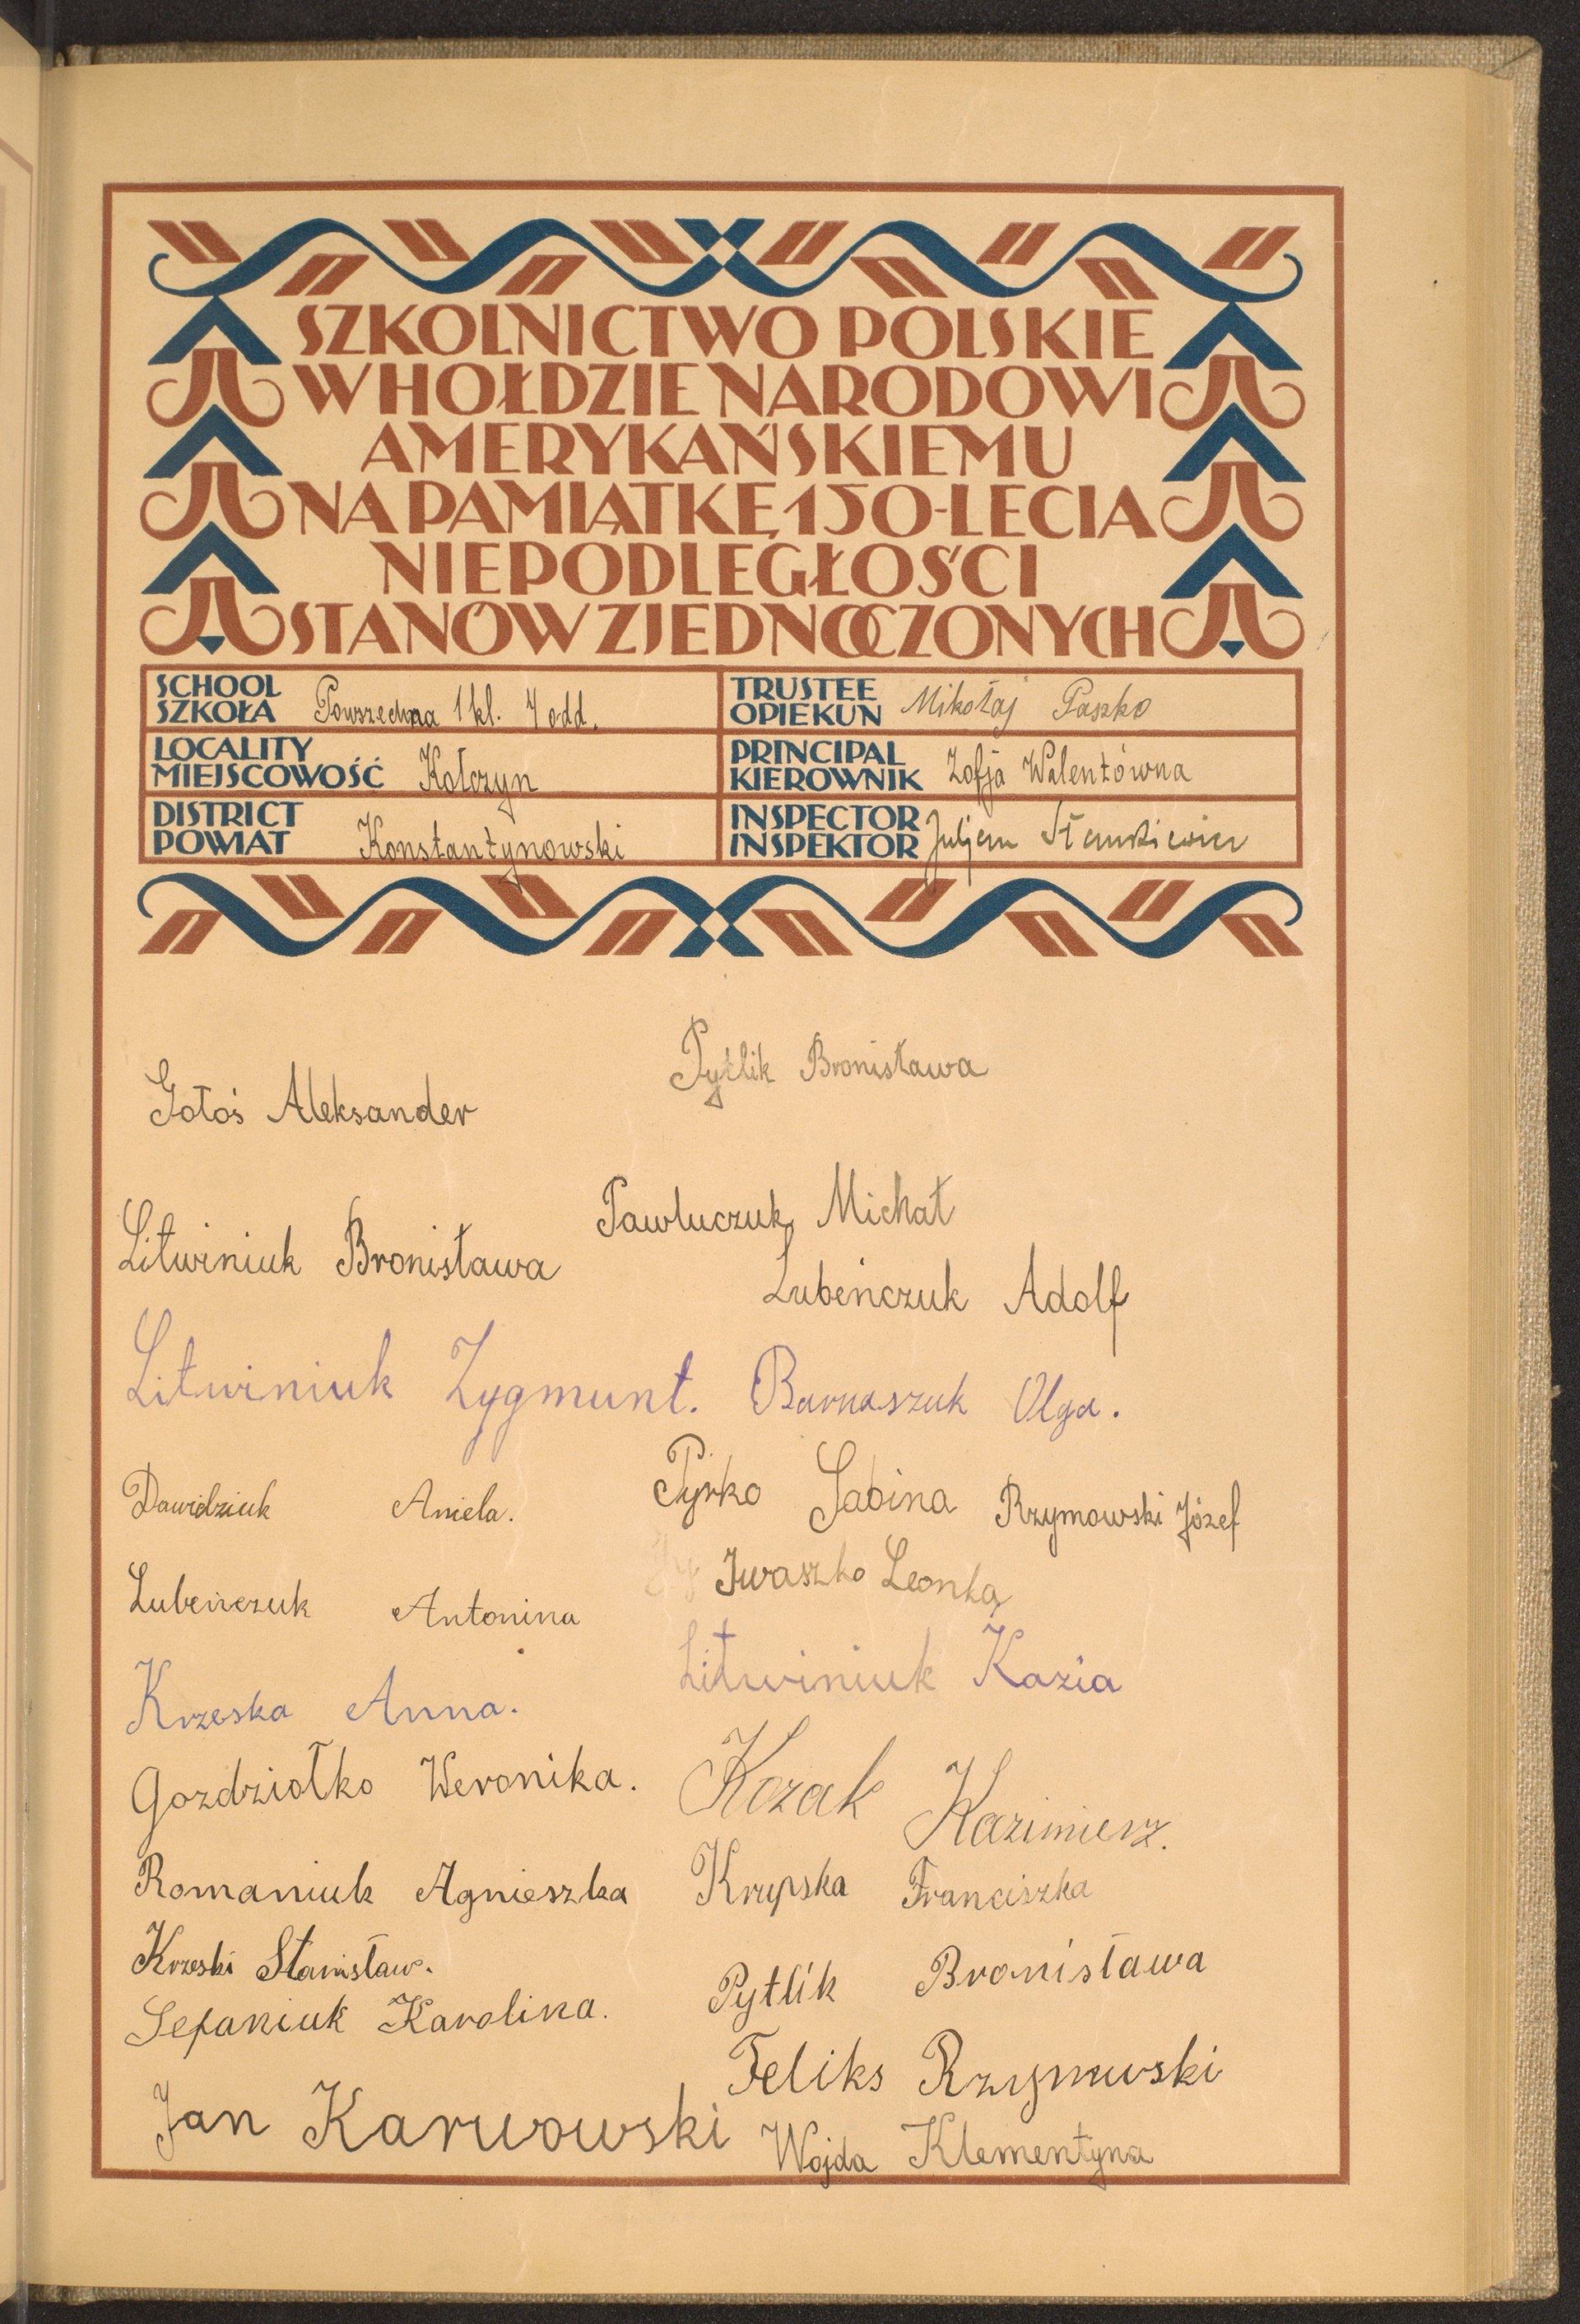 SZKOLNICTWO POLSKIE
W HOŁDZIE NARODOWI
AMERYKAŃSKIEMU
NA PAMIĄTKĘ 150-LECIA
NIEPODLEGŁOŚCI
STANÓW ZJEDNOCZONYCH
SCHOOL
SZKOŁA Powszechna 1 kl. 4 odd.
TRUSTEE
OPIEKUN Mikołaj Paszko
LOCALITY
MIEJSCOWOŚĆ Kołczyn
PRINCIPAL
KIEROWNIK Zofja Walentówna
DISTRICT
POWIAT Konstantynowski
INSPECTOR
INSPEKTOR Juljan
Pytlik Bronisława
Gołoś Aleksander
Pawluczuk Michał
Litwiniuk Bronisława
Lubeńczuk Adolf
Litwiniuk Zygmunt.
Barnaszuk Olga.
Dawidziuk Aniela.
Pyrko Sabina
Rzymowski Józef
Iwaszko Leonka
Lubeńczuk Antonina
Litwiniuk Kazia
Krzeska Anna.
Gozdziołko Weronika.
Kozak Kazimierz.
Romaniuk Agnieszka
Krupska Franciszka
Krzeski Stanisław.
Pytlik Bronisława
Sefaniuk Karolina.
Feliks Rzymowski
Jan Karwowski
Wojda Klementyna